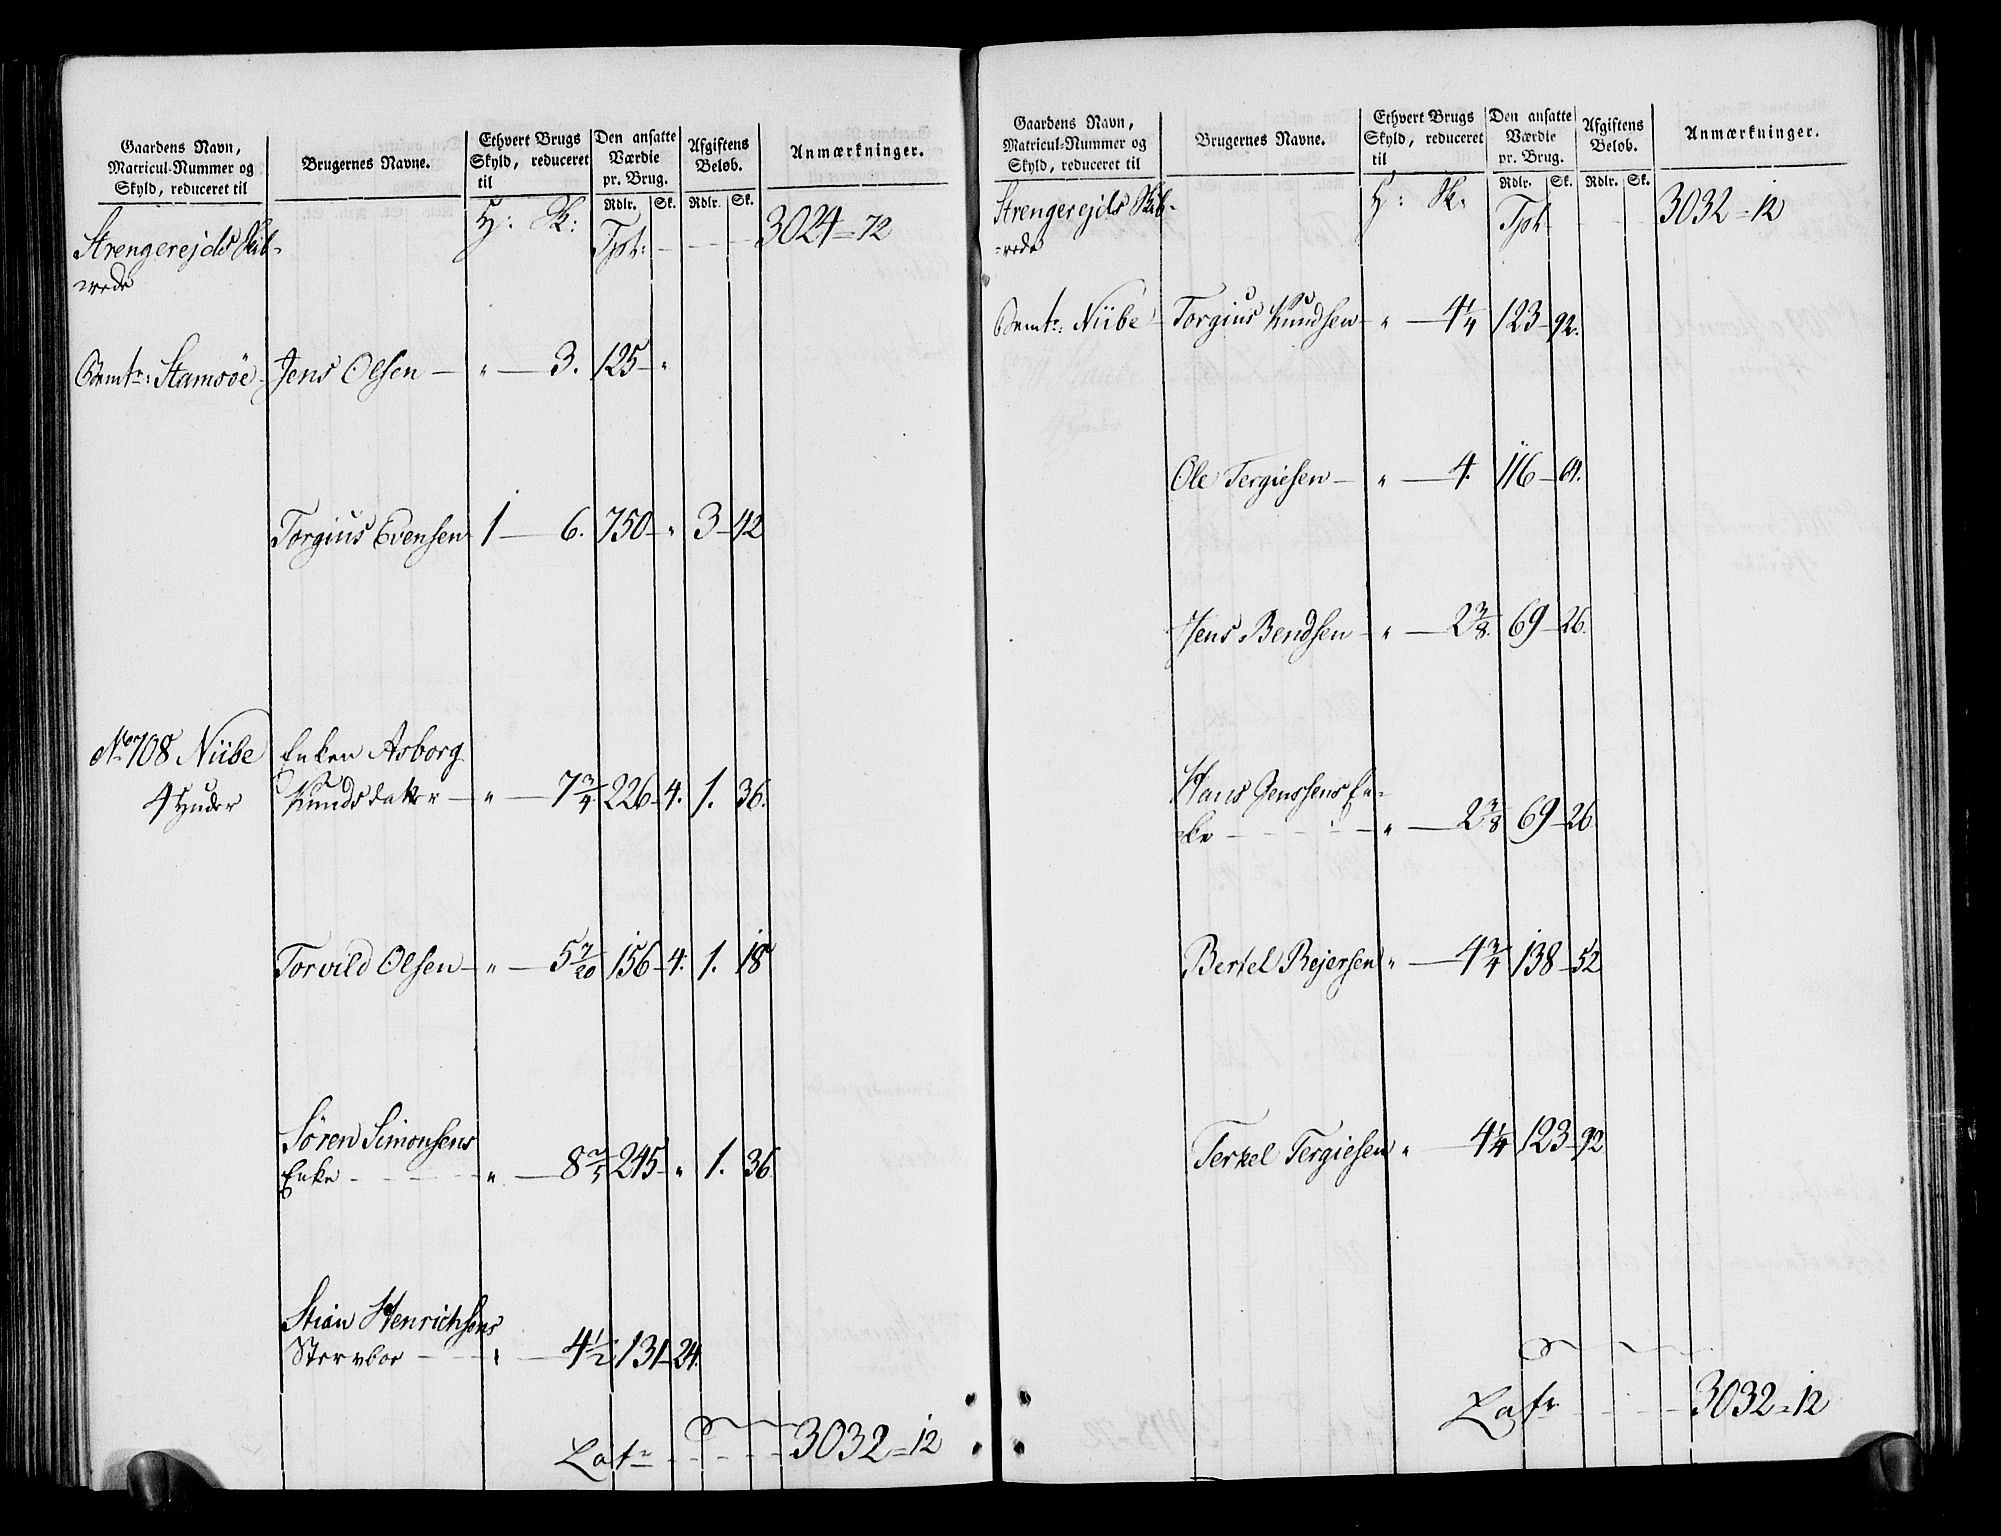 Gaardens Navn,
Matricul-Nummer og
Skyld, reduceret til
Brugernes Navne.
Ethvert Brugs
Skyld, reduceret
til
Den ansatte
Værdie
pr. Brug.
Rdlr. Sk.
Afgiftens
Beløb.
Rdlr. Sk.
Anmærkninger.
Strengerejds Skib-
rede
H: Sk:
Tpt: - - - - 3024 = 72
Stamsøe - Jens Olsen — " — 3. 125 - "
Torgius Evensen 1 — 6. 750 - " 3 - 42
No 708 Niibe Enken Asborg
4 Huder Knudsdatter — " — 7 3/4 226 - 4. 1. 36.
Torvild Olsen — " — 5 7/20 156 - 4. 1. 18
Søren Simonsens
Enke - - - - - " — 8 2/5 245 - " 1. 36.
Stian Henrichsens
Stervboe — — " — 4 1/2 131 - 24.
Latr - - - - - 3032 = 12
Gaardens Navn,
Matricul-Nummer og
Skyld, reduceret til
Brugernes Navne.
Ethvert Brugs
Skyld, reduceret
til
Den ansatte
Værdie
pr. Brug.
Rdlr. Sk.
Afgiftens
Beløb.
Rdlr. Sk.
Anmærkninger.
Strengerejds Skib-
rede
H: Sk:
Tpt - - - 3032 = 12
Niibe - Torgius Knudsen - " — 4 1/4 123 - 92.
Ole Tergiesen — " — 4. 116 - 64.
Jens Bendsen - " — 2 3/8. 69 - 26.
Hans Jenssens En-
ke - - - - - " — 2 3/8 69 - 26
Bertel Rejersen " — 4 3/4 138 - 52
Terkel Tergiesen " — 4 1/4 123 - 92
Latr - - - - - 3032 = 12